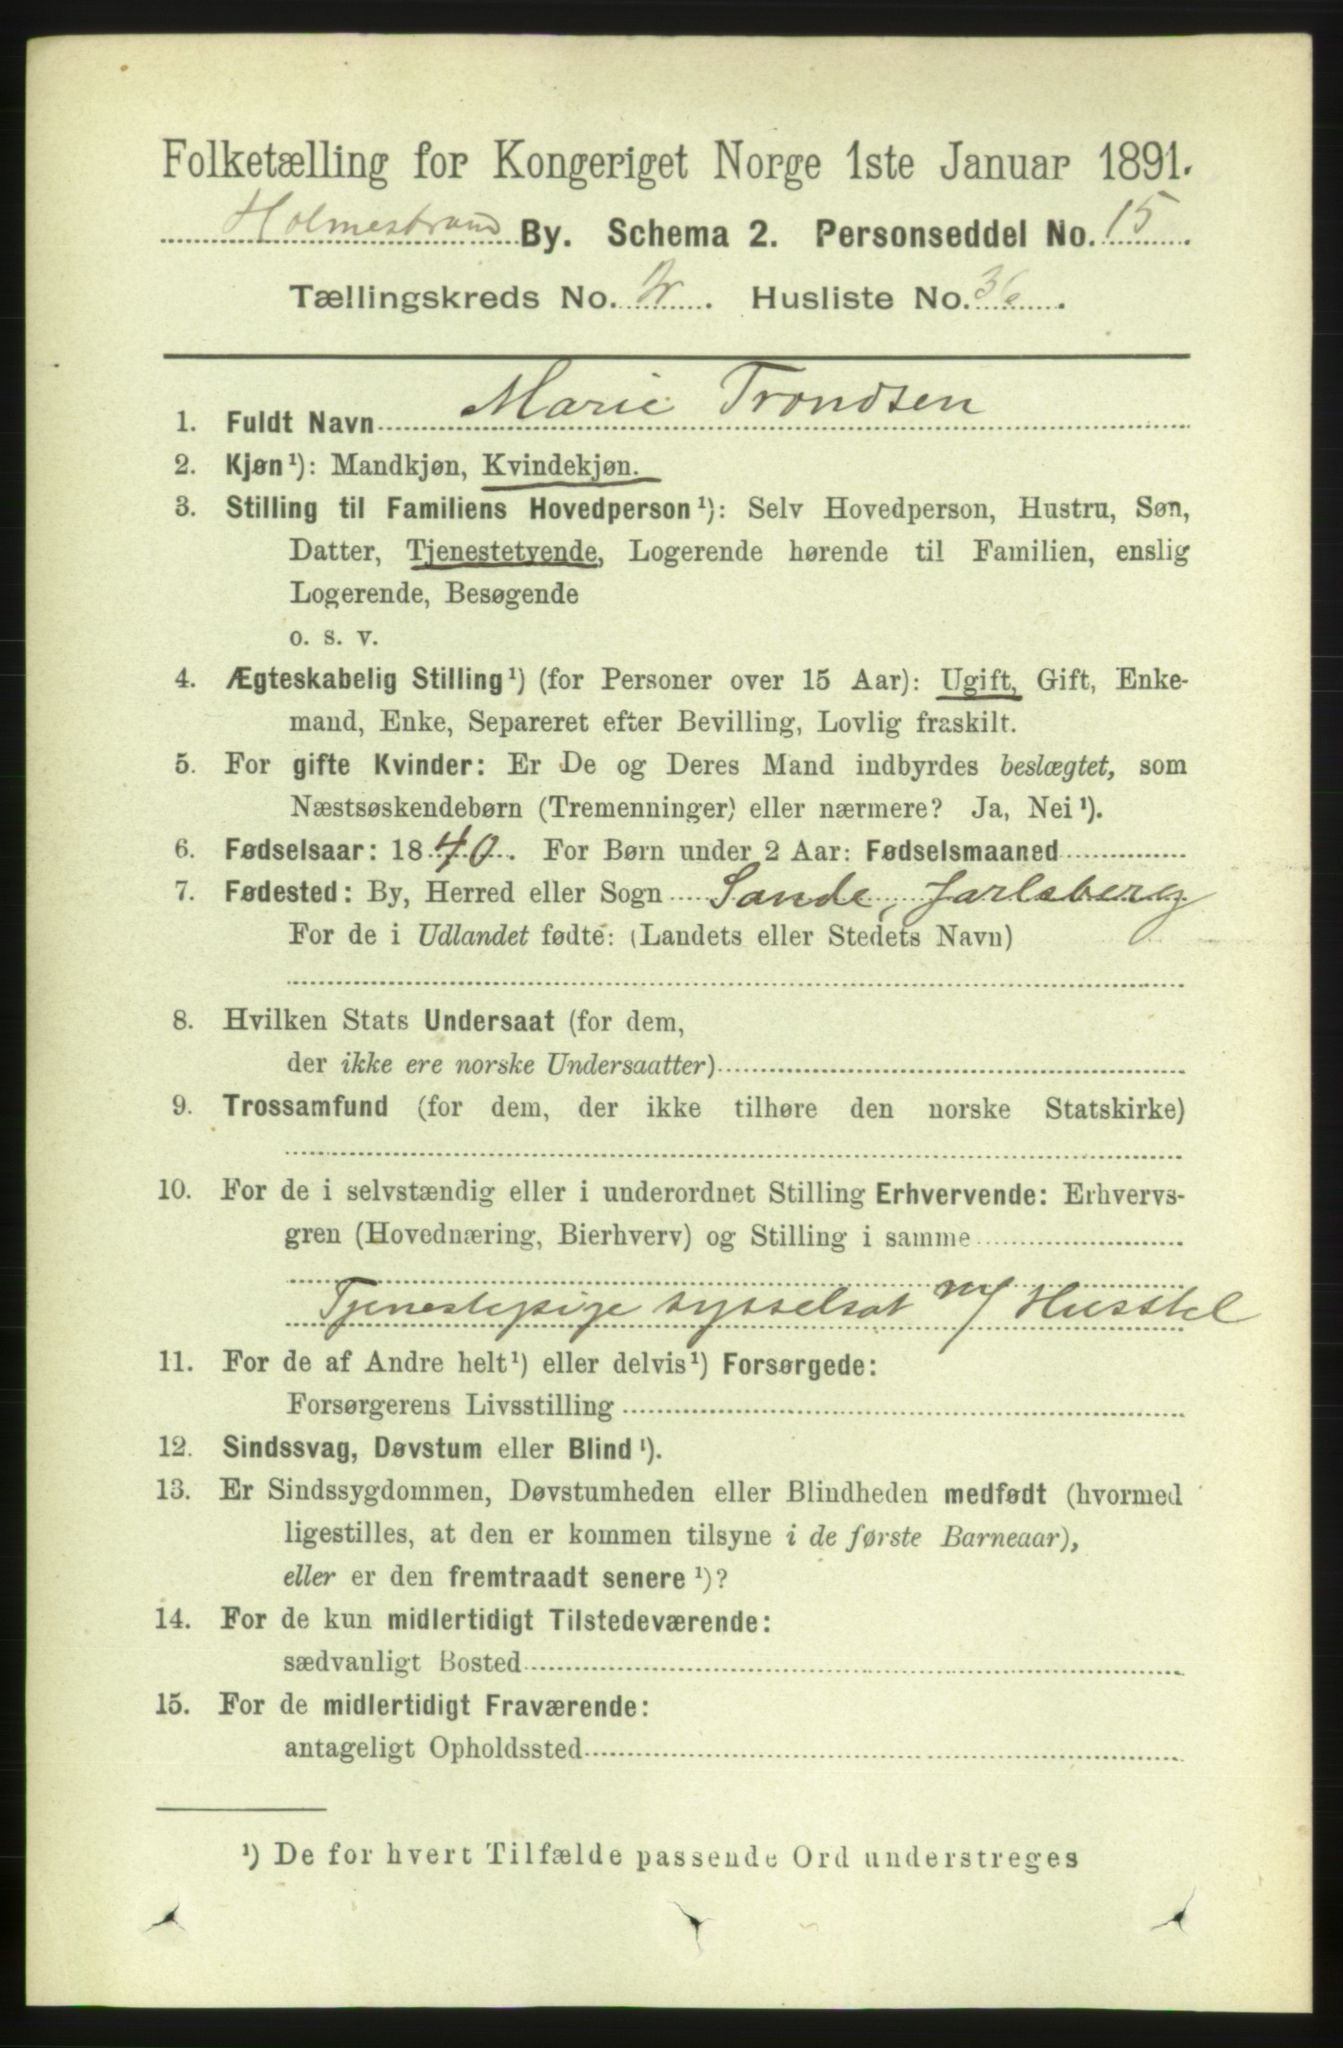 Folketælling for Kongeriget Norge 1ste Januar 1891.
Holmestrand By. Schema 2. Personseddel No. 15
Tællingskreds No. 2. Husliste No. 36.
1. Fuldt Navn Marie Trondsen
2. Kjøn¹): Mandkjøn, Kvindekjøn.
3. Stilling til Familiens Hovedperson¹): Selv Hovedperson, Hustru, Søn,
Datter, Tjenestetyende, Logerende hørende til Familien, enslig
Logerende, Besøgende
o. s. v.
4. Ægteskabelig Stilling¹) (for Personer over 15 Aar): Ugift, Gift, Enke-
mand, Enke, Separeret efter Bevilling, Lovlig fraskilt.
5. For gifte Kvinder: Er De og Deres Mand indbyrdes beslægtet, som
Næstsøskendebørn (Tremenninger) eller nærmere? Ja, Nei¹).
6. Fødselsaar: 1840. For Børn under 2 Aar: Fødselsmaaned
7. Fødested: By, Herred eller Sogn Sande, Jarlsberg
For de i Udlandet fødte: (Landets eller Stedets Navn)
8. Hvilken Stats Undersaat (for dem,
der ikke ere norske Undersaatter)
9. Trossamfund (for dem, der ikke tilhøre den norske Statskirke)
10. For de i selvstændig eller i underordnet Stilling Erhvervende: Erhvervs-
gren (Hovednæring, Bierhverv) og Stilling i samme
Tjenestepige sysselsat m/ Husstel
11. For de af Andre helt¹) eller delvis¹) Forsørgede:
Forsørgerens Livsstilling
12. Sindssvag, Døvstum eller Blind¹).
13. Er Sindssygdommen, Døvstumheden eller Blindheden medfødt (hvormed
ligestilles, at den er kommen tilsyne i de første Barneaar),
eller er den fremtraadt senere¹)?
14. For de kun midlertidigt Tilstedeværende:
sædvanligt Bosted
15. For de midlertidigt Fraværende:
antageligt Opholdssted
¹) De for hvert Tilfælde passende Ord understreges